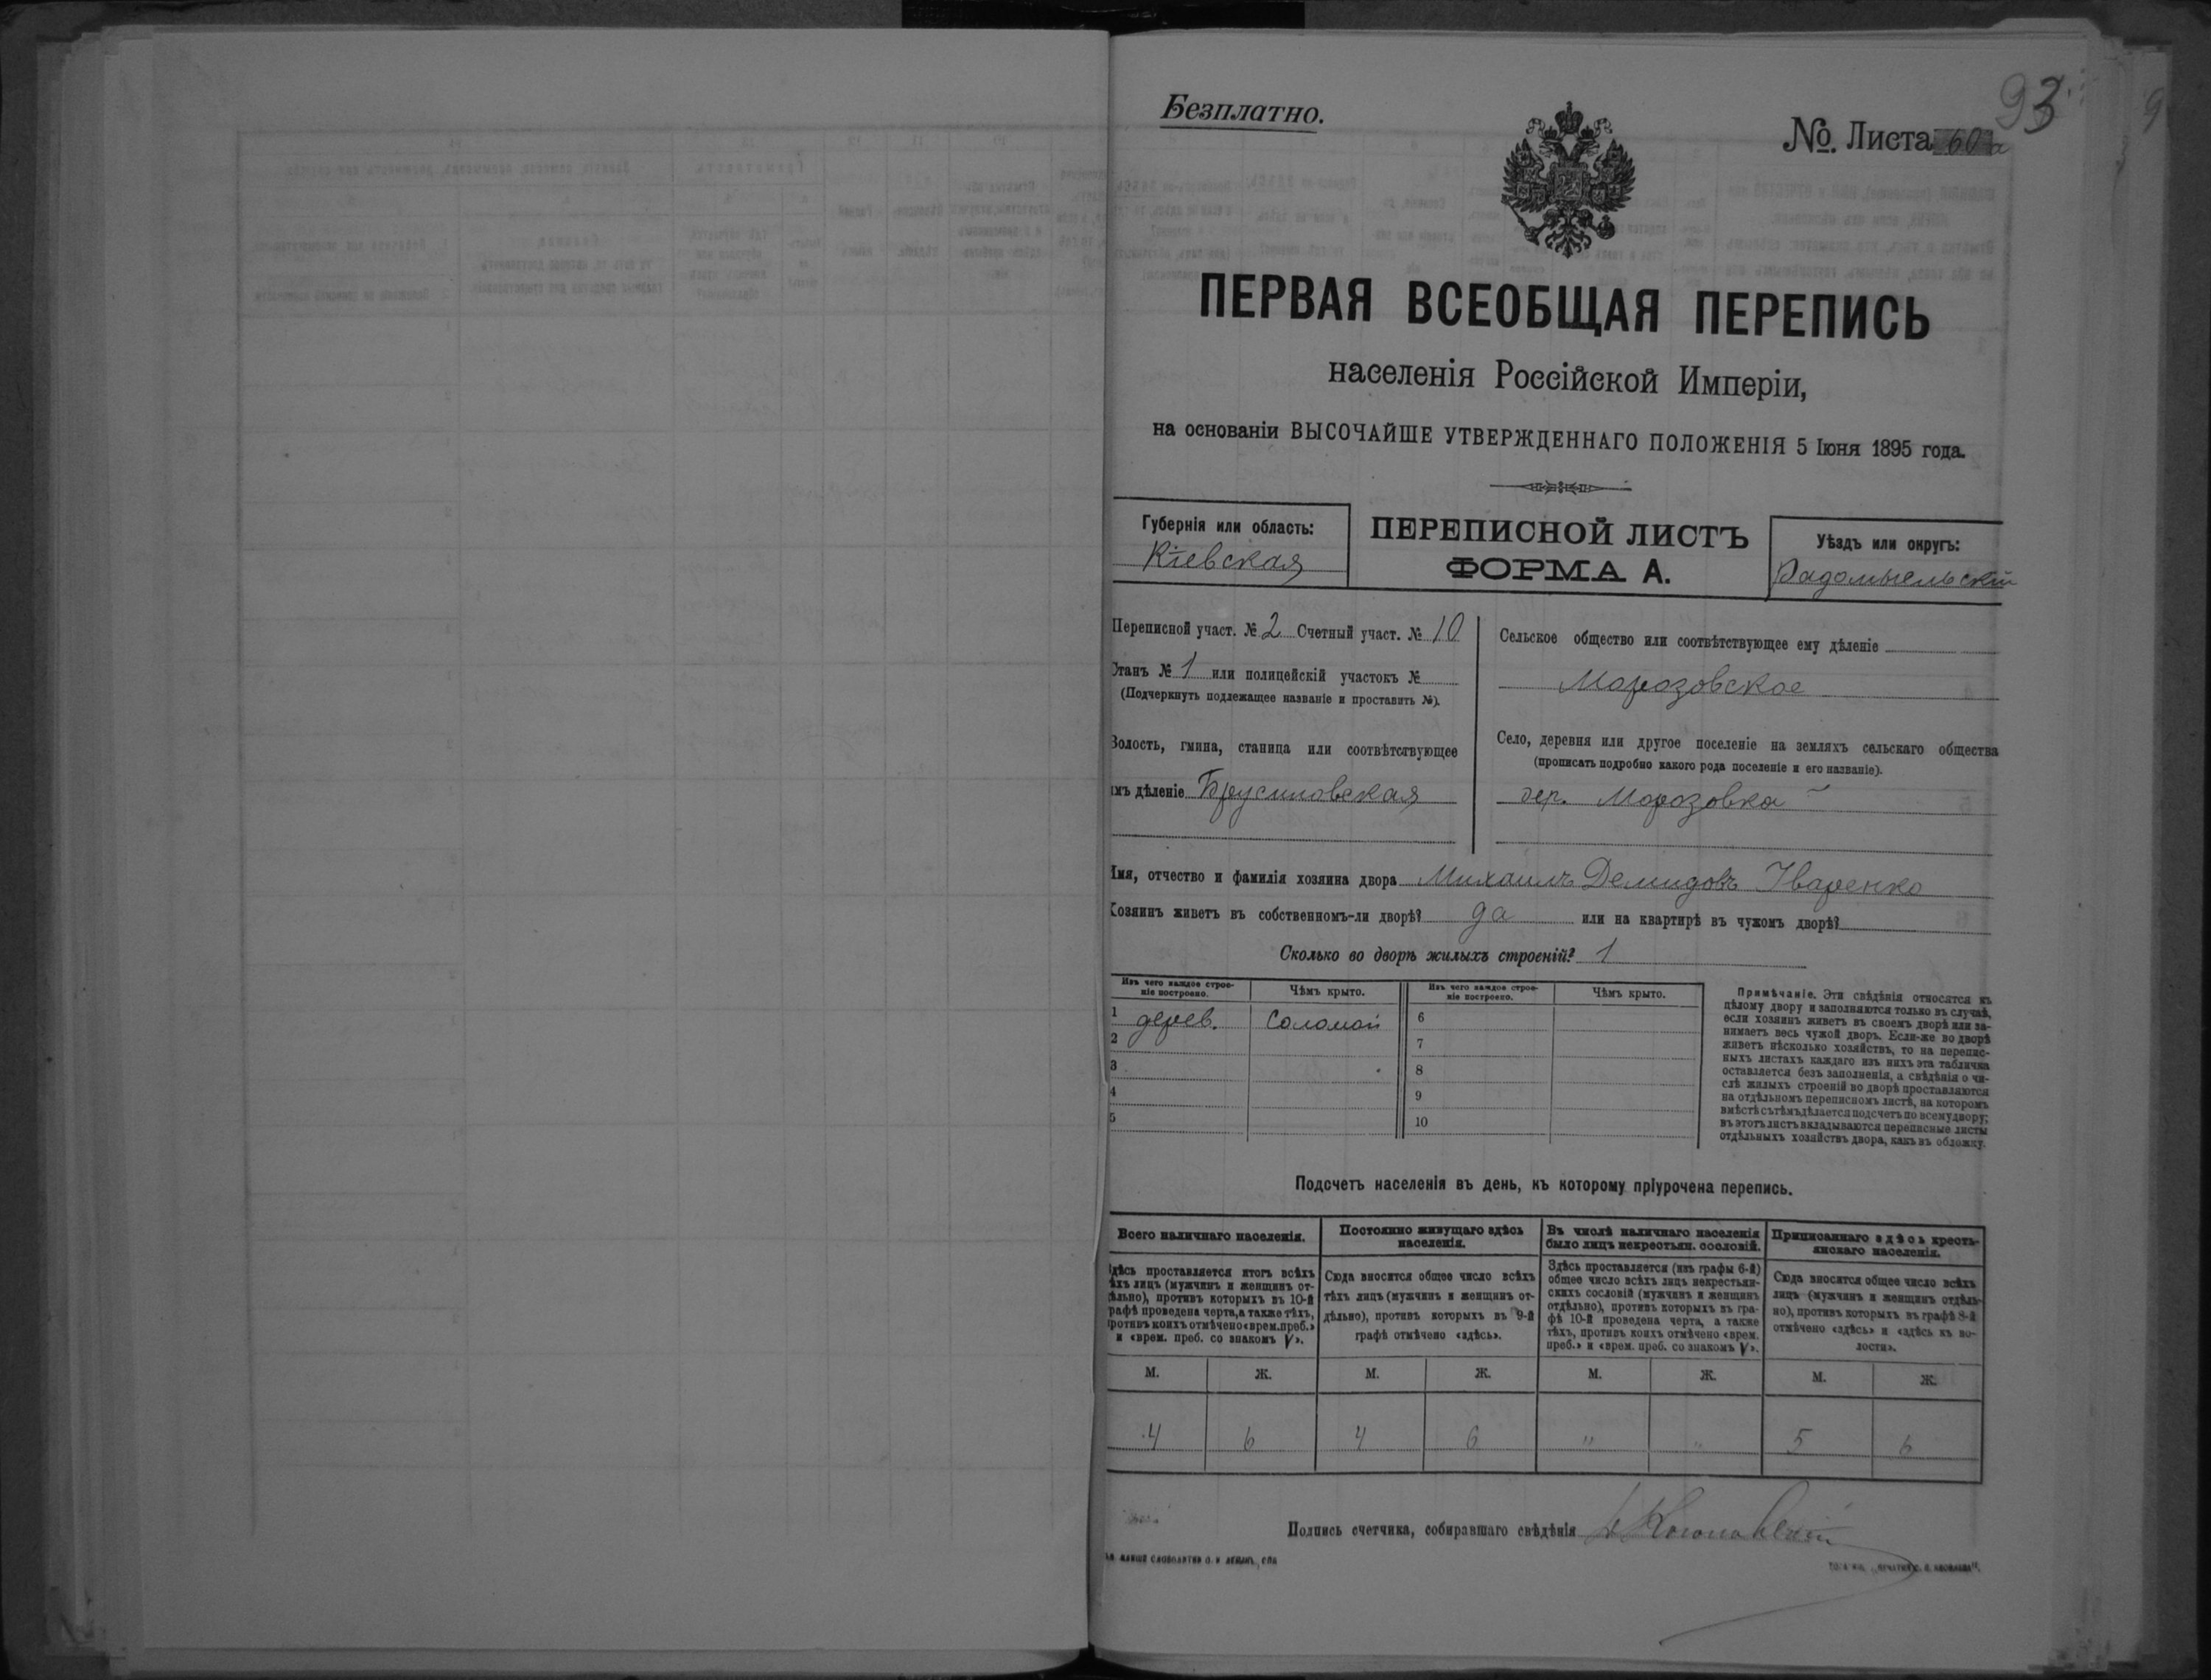 93
Безплатно.
№ Листа 60 а
ПЕРВАЯ ВСЕОБЩАЯ ПЕРЕПИСЬ
населенія Россійской Имперіи,
на основаніи ВЫСОЧАЙШЕ УТВЕРЖДЕННАГО ПОЛОЖЕНІЯ 5 Іюня 1895 года.
Губернія или область:
Кіевская
ПЕРЕПИСНОЙ ЛИСТЪ
ФОРМА А.
Уѣздъ или округъ:
Радомысльскій
Переписной участ. № 2 Счетный участ. № 10
Станъ № 1 или полицейскій участокъ №
(Подчеркнуть подлежащее названіе и проставить №).
Волость, гмина, станица или соотвѣтствующее
имъ дѣленіе Брусиловская
Сельское общество или соотвѣтствующее ему дѣленіе
Морозовское
Село, деревня или другое поселеніе на земляхъ сельскаго общества
(прописать подробно какого рода поселеніе и его названіе).
дер. Морозовка
Имя, отчество и фамилія хозяина двора Михаилъ Демидовъ
Хозяинъ живетъ въ собственномъ-ли дворѣ? да или на квартирѣ въ чужомъ дворѣ?
Сколько во дворѣ жилыхъ строеній? 1
Изъ чего каждое строеніе построено.
Чѣмъ крыто.
Изъ чего каждое строеніе построено.
Чѣмъ крыто.
1 дерев. Соломой 6
2 7
3 8
4 9
5 10
Примѣчаніе. Эти свѣдѣнія относятся къ
цѣлому двору и заполняются только въ случаѣ,
если хозяинъ живетъ въ своемъ дворѣ или за-
нимаетъ весь чужой дворъ. Если-же во дворѣ
живетъ нѣсколько хозяйствъ, то на перепис-
ныхъ листахъ каждаго изъ нихъ эта табличка
оставляется безъ заполненія, а свѣдѣнія о чи-
слѣ жилыхъ строеній во дворѣ проставляются
на отдѣльномъ переписномъ листѣ, на которомъ
вмѣстѣ съ тѣмъ дѣлается подсчетъ по всему двору;
въ этотъ листъ вкладываются переписные листы
отдѣльныхъ хозяйствъ двора, какъ въ обложку.
Подсчетъ населенія въ день, къ которому пріурочена перепись.
Всего наличнаго населенія.
Здѣсь проставляется итогъ всѣхъ
тѣхъ лицъ (мужчинъ и женщинъ от-
дѣльно), противъ которыхъ въ 10-й
графѣ проведена черта, а также тѣхъ,
противъ коихъ отмѣчено «врем. преб.»
и «врем. преб. со знакомъ V».
Постоянно живущаго здѣсь
населенія.
Сюда вносится общее число всѣхъ
тѣхъ лицъ (мужчинъ и женщинъ от-
дѣльно), противъ которыхъ въ 9-й
графѣ отмѣчено «здѣсь».
Въ числѣ наличнаго населенія
было лицъ некрестьян. сословій.
Здѣсь проставляется (изъ графы 6-й)
общее число всѣхъ лицъ некрестьян-
скихъ сословій (мужчинъ и женщинъ
отдѣльно), противъ которыхъ въ гра-
фѣ 10-й проведена черта, а также
тѣхъ, противъ коихъ отмѣчено «врем.
преб.» и «врем. преб. со знакомъ V».
Приписаннаго здѣсь кресть-
янскаго населенія.
Сюда вносится общее число всѣхъ
лицъ (мужчинъ и женщинъ отдѣль-
но), противъ которыхъ въ графѣ 8-й
отмѣчено «здѣсь» и «здѣсь къ во-
лости».
М. Ж. М. Ж. М. Ж. М. Ж.
4 6 4 6 " " 5 6
Подпись счетчика, собиравшаго свѣдѣнія